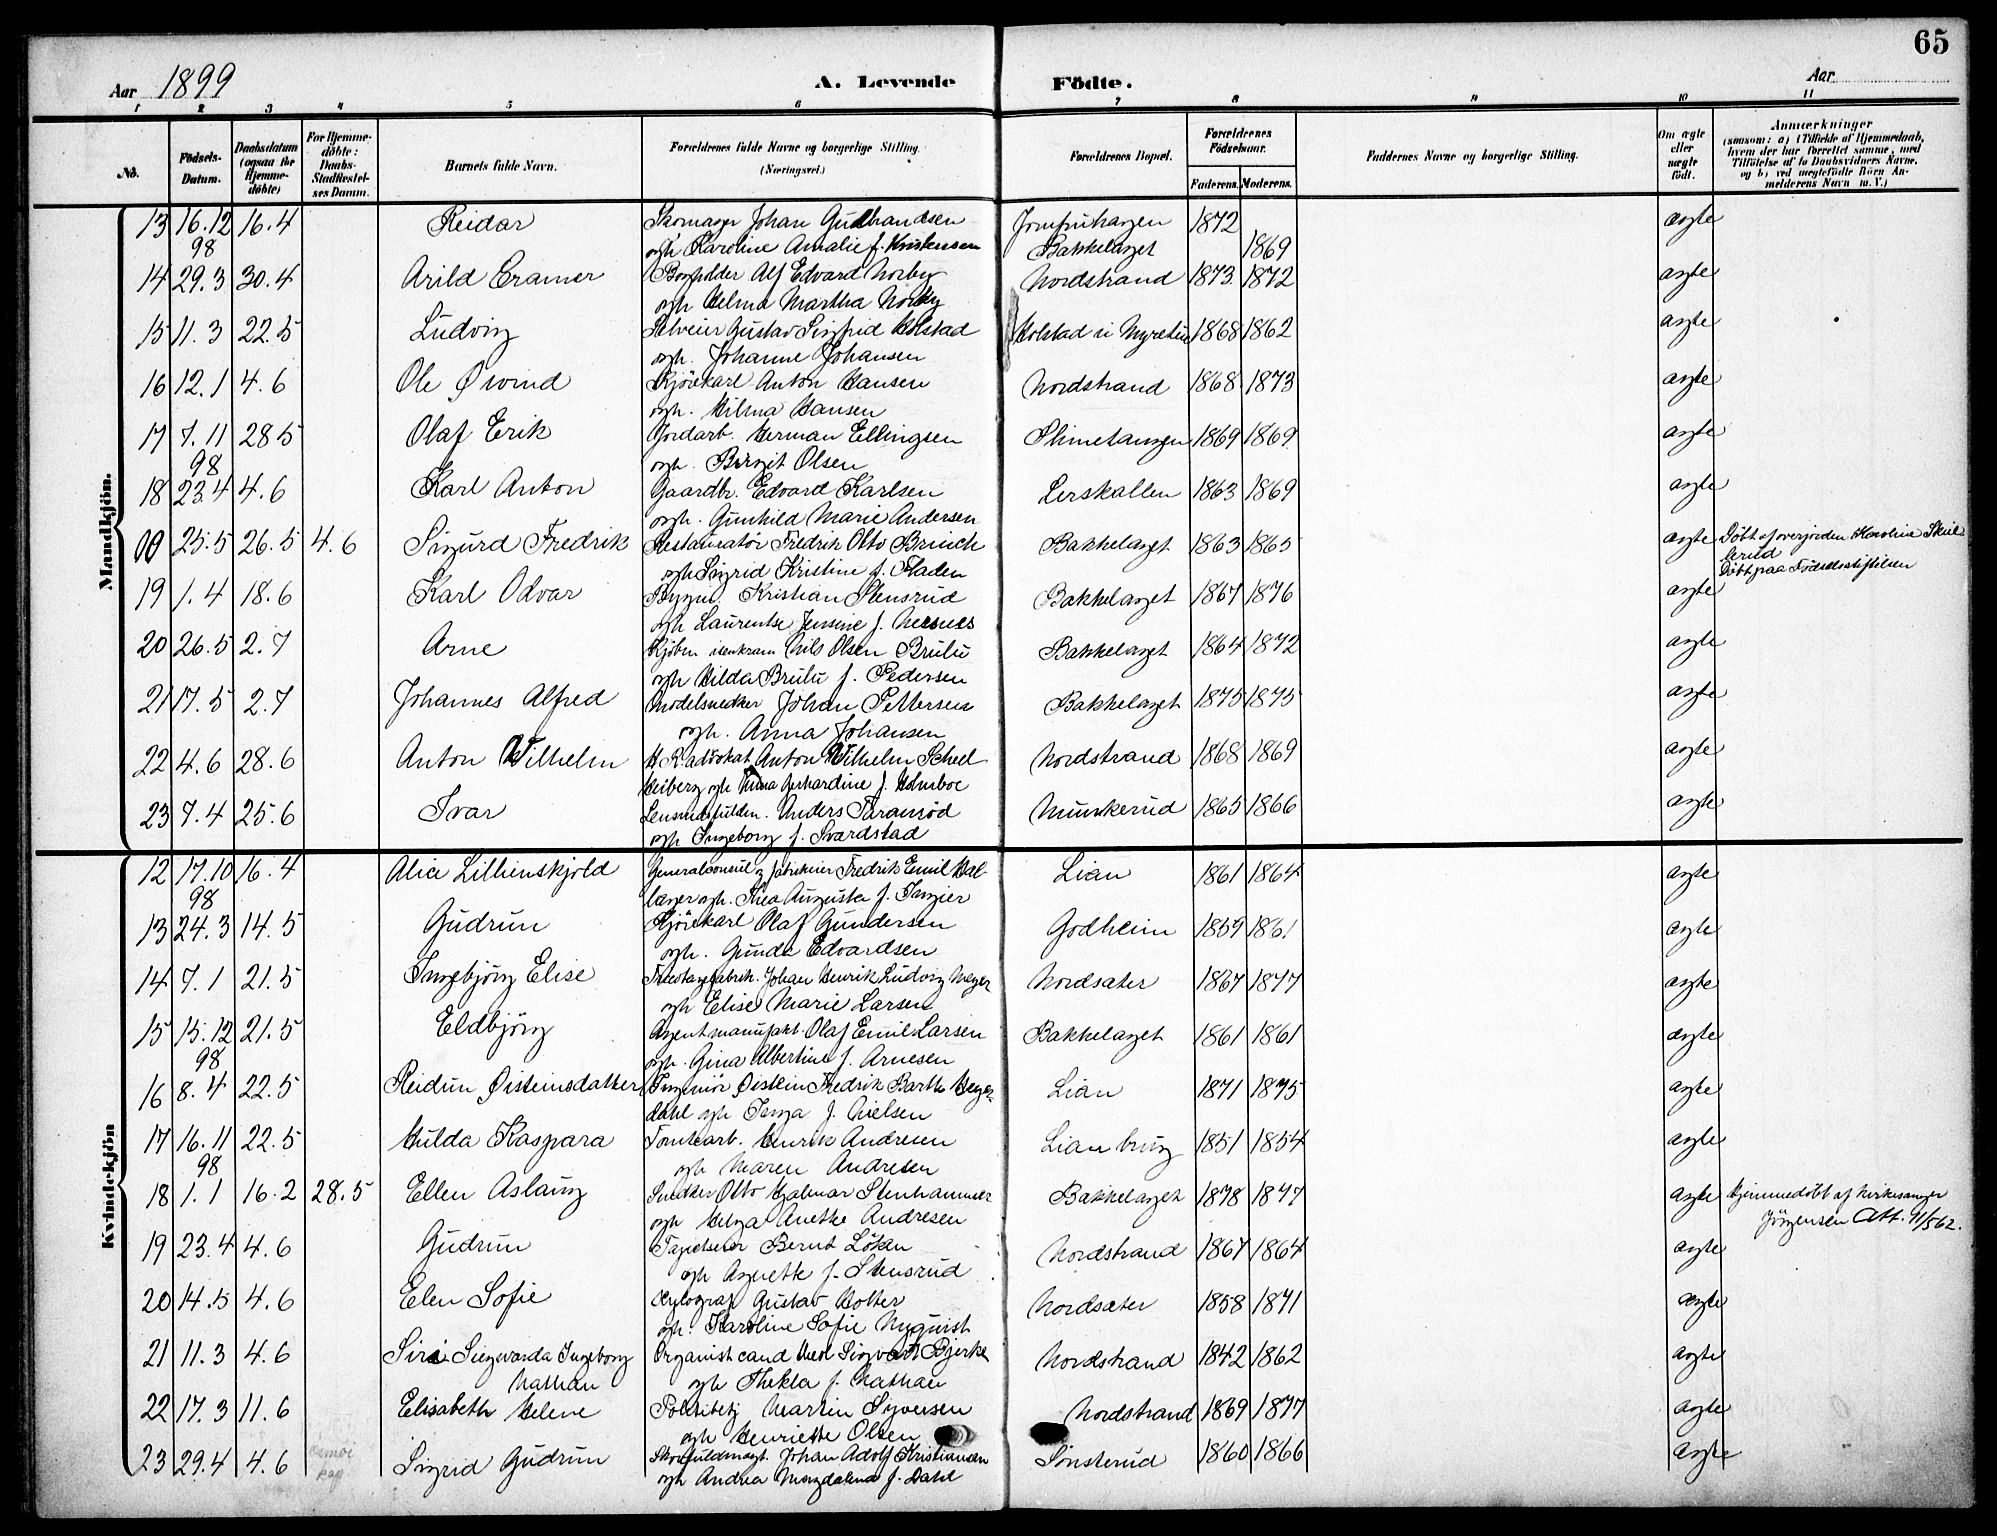 65
Aar 1899 A. Levende Födte. Aar
1 2 3 4 5 6 7 8 9 10 11
No. Födsels-Datum. Daabsdatum (ogsaa for Hjemme-döbte) For Hjemme-döbte: Daabs-Stadfæstel-ses Datum. Barnets fulde Navn. Forældrenes fulde Navne og borgerlige Stilling. (Næringsvei.) Forældrenes Bopæl. Forældrenes Födselsaar. Faderens. Moderens. Faddernes Navne og borgerlige Stilling. Om ægte eller uægte födt. Anmærkninger (saasom: a) i Tilfælde af Hjemmedaab, hvem der har forrettet samme, med Tilföielse af to Daabsvidners Navne, og b) ved uægtefödte Börn An-melderens Navn m. V.)
Mandkjön.
13 16.12 16.4 Reidar Skomager Johan Gudbrandsen Jomfruhagen 1872 ægte
98 og h. Karoline Amalie f. Kristensen Bækkelaget 1869
14 29.3 30.4 Arild Cramer Bogholder Alf Edvard Norby Nordstrand 1873 1872 ægte
og h. Helma Martha Norby
15 11.3 22.5 Ludvig Selveier Gustav Sigfrid Holstad Holstad i 1868 1862 ægte
og h. Johanne Johansen
16 12.1 4.6 Ole Øivind Kjørekarl Anton Hansen Nordstrand 1868 1873 ægte
og h. Hilma Hansen
17 7.11 28.5 Olaf Erik Jordarb. Herman Ellingsen Slimetangen 1869 1869 ægte
98 og h. Birgit Olsen
18 23.4 4.6 Karl Anton Gaardbr. Edvard Karlsen Lerskallen 1863 1869 ægte
og h. Gunhild Marie Andersen
00 25.5 26.5 4.6 Sigurd Fredrik Restauratør Fredrik Otto Brinch Bækkelaget 1863 1865 ægte Döbt af overjorden Karoline Skul-
lerud
og h. Sigrid Kristine f. Fladen Döbt paa Födselsstiftelsen
19 1.4 18.6 Karl Odvar Bygm. Kristian Stensrud Bækkelaget 1867 1876 ægte
og h. Laurentse Jensine f. Nesnes
20 26.5 2.7 Arne Kjøbm. isenkram Nils Olsen Brulu Bækkelaget 1864 1872 ægte
og h. Hilda Brulu f. Pedersen
21 17.5 2.7 Johannes Alfred Modelsnedker Johan Pettersen Bækkelaget 1875 1875 ægte
og h. Anna Johansen
22 4.6 28.6 Anton Wilhelm H.R. advokat Anton Wilhelm Scheel Nordstrand 1868 1869 ægte
Heiberg og h. Gerhardine f. Holmboe
23 7.4 25.6 Ivar Lensmdsfuldm. Anders Taraniød Munkerud 1865 1866 ægte
og h. Ingeborg f. Svardstad
Kvindekjön
12 17.10 16.4 Alice Lillienskjold Generalconsul og fabrikeier Fredrik Emil Hal- Lian 1861 1864 ægte
98 lager og h. Thea Augusta f. Tangier
13 24.3 14.5 Gudrun Kjørekarl Olaf Gundersen Godheim 1859 1861 ægte
og h. Gunda Edvardsen
14 7.1 21.5 Ingebjørg Elise Tricotagefabrik. Johan Henrik Ludvig Meyer Nordsæter 1867 1877 ægte
og h. Elise Marie Larsen
15 15.12 21.5 Eldbjørg Agent manufakt. Olaf Emil Larsen Bækkelaget 1861 1861 ægte
98 og h. Gina Albertine f. Arnesen
16 8.4 22.5 Reidun Øisteinsdatter Ingeniør Øistein Fredrik Barth Heyer- Lian 1871 1875 ægte
dahl og h. Inga f. Nielsen
17 16.11 22.5 Hulda Kaspara Tomtearb. Henrik Andresen Lian brug 1851 1854 ægte
98 og h. Maren Andresen
18 1.1 16.2 28.5 Ellen Aslaug Snedker Otto Hjalmar Stenhammer Bækkelaget 1878 1877 ægte Hjemmedöbt af kirkesanger
og h. Helga Anette Andresen Jörgensen Att. 11/5 62.
19 23.4 4.6 Gudrun Tapetserer Bernt Løken Nordstrand 1867 1864 ægte
og h. Agnethe f. Stensrud
20 14.5 4.6 Elen Sofie Xylograf Gustav Holter Nordsæter 1858 1871 ægte
og h. Karoline Sofie Nyquist
21 11.3 4.6 Siri Siegvarda Ingeborg Organist cand theol Sigvart Bjerke Nordstrand 1842 1862 ægte
Nathan og h. Thekla f. Nathan
22 17.3 11.6 Elisabeth Helene Politibetj Martin Syversen Nordstrand 1869 1877 ægte
og h. Henriette Olsen
23 29.4 4.6 Sigrid Gudrun Skovfuldmægt. Johan Adolf Kristiansen Sönsterud 1860 1866 ægte
kap og h. Andrea Magdalena f. Dahl